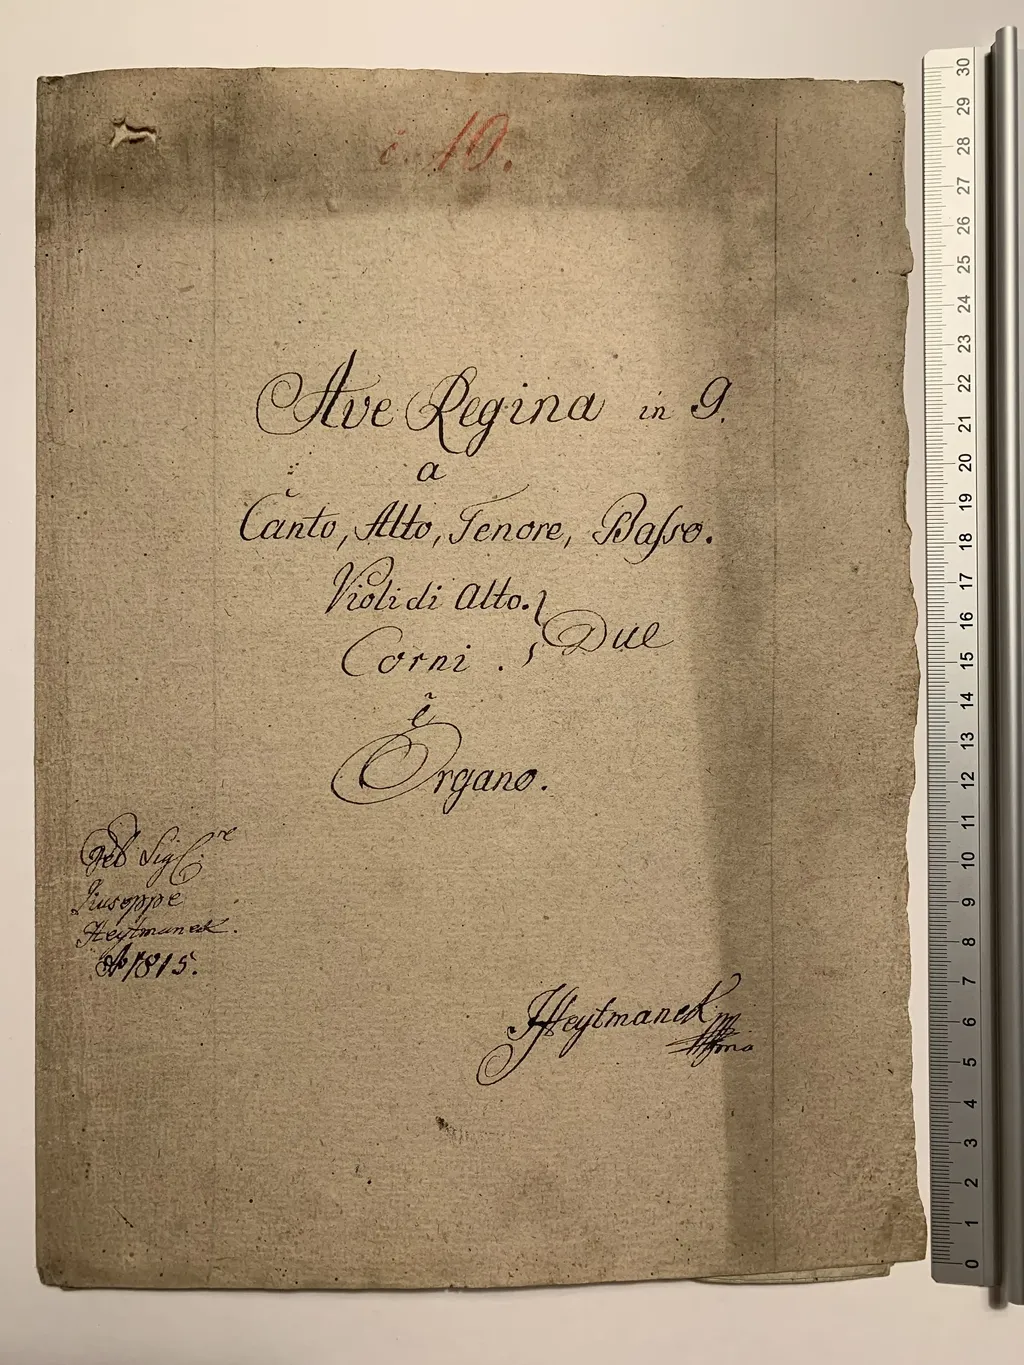 č. 10.
Ave Regina in G.
a
Canto, Alto, Tenore, Basso.
Violi di Alto.
Due
Corni .
ẽ
Organo.
Del Sig.re
Giuseppe
Heytmanek.
Ao 1815.
JHeytmanek
30
29
28
27
26
25
24
23
22
21
20
19
18
17
16
15
14
13
12
11
10
9
8
7
6
5
4
3
2
1
0